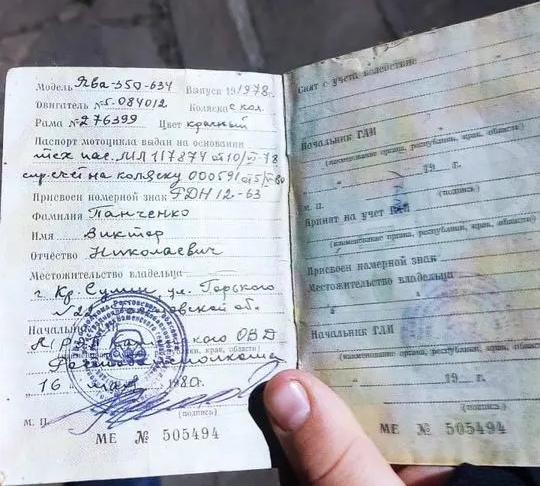 Модель Ява-350-634 Выпуск 191978 г.
Двигатель № 5-084012 Коляска с кол.
Рама № 276399 Цвет красный
Паспорт мотоцикла выдан на основании
тех пас. МЛ 117874 от 10/VI-78
справ-счёт на коляску 000591 от 5/V-80
Присвоен номерной знак РДН 12-63
Фамилия Панченко
Имя Виктор
Отчество Николаевич
Местожительство владельца
г Кр. Сулин ул. Горького
Начальник
ОВД
(наименование органа, республики, края, области)
16 мая 1980 г.
М. П. (подпись)
МЕ № 505494
Снят с учета вследствие
Начальник ГАИ
(наименование органа, республики, края, области)
" " 19 г.
М. П. (подпись)
Принят на учет в
(наименование органа, республики, края, области)
Присвоен номерной знак
Местожительство владельца
Начальник ГАИ
(наименование органа, республики, края, области)
" " 19 г.
(подпись)
МЕ № 505494